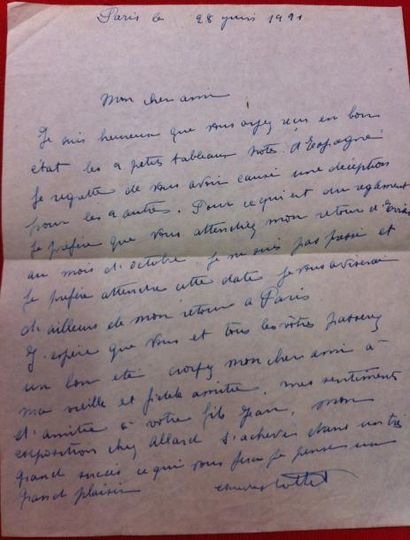 Paris le 28 juin 1911
Mon cher ami
Je suis heureux que vous ayez reçu en bon
état les 2 petits tableaux notes d'Espagne
Je regrette de vous avoir causé une déception
pour les 2 autres. Pour ce qui est du règlement
Je préfère que vous attendiez mon retour d'
au mois d'octobre. Je ne suis pas pressé et
Je préfère attendre cette date Je vous aviserai
d'ailleurs de mon retour à Paris
J'espère que vous et tous les vôtres passerez
un bon été croyez mon cher ami à
ma vieille et fidèle amitié, mes sentiments
d'amitié à votre fils Jean, mon
exposition chez Allard s'achève dans un très
grand succès ce qui vous fera je pense un
grand plaisir Cottet